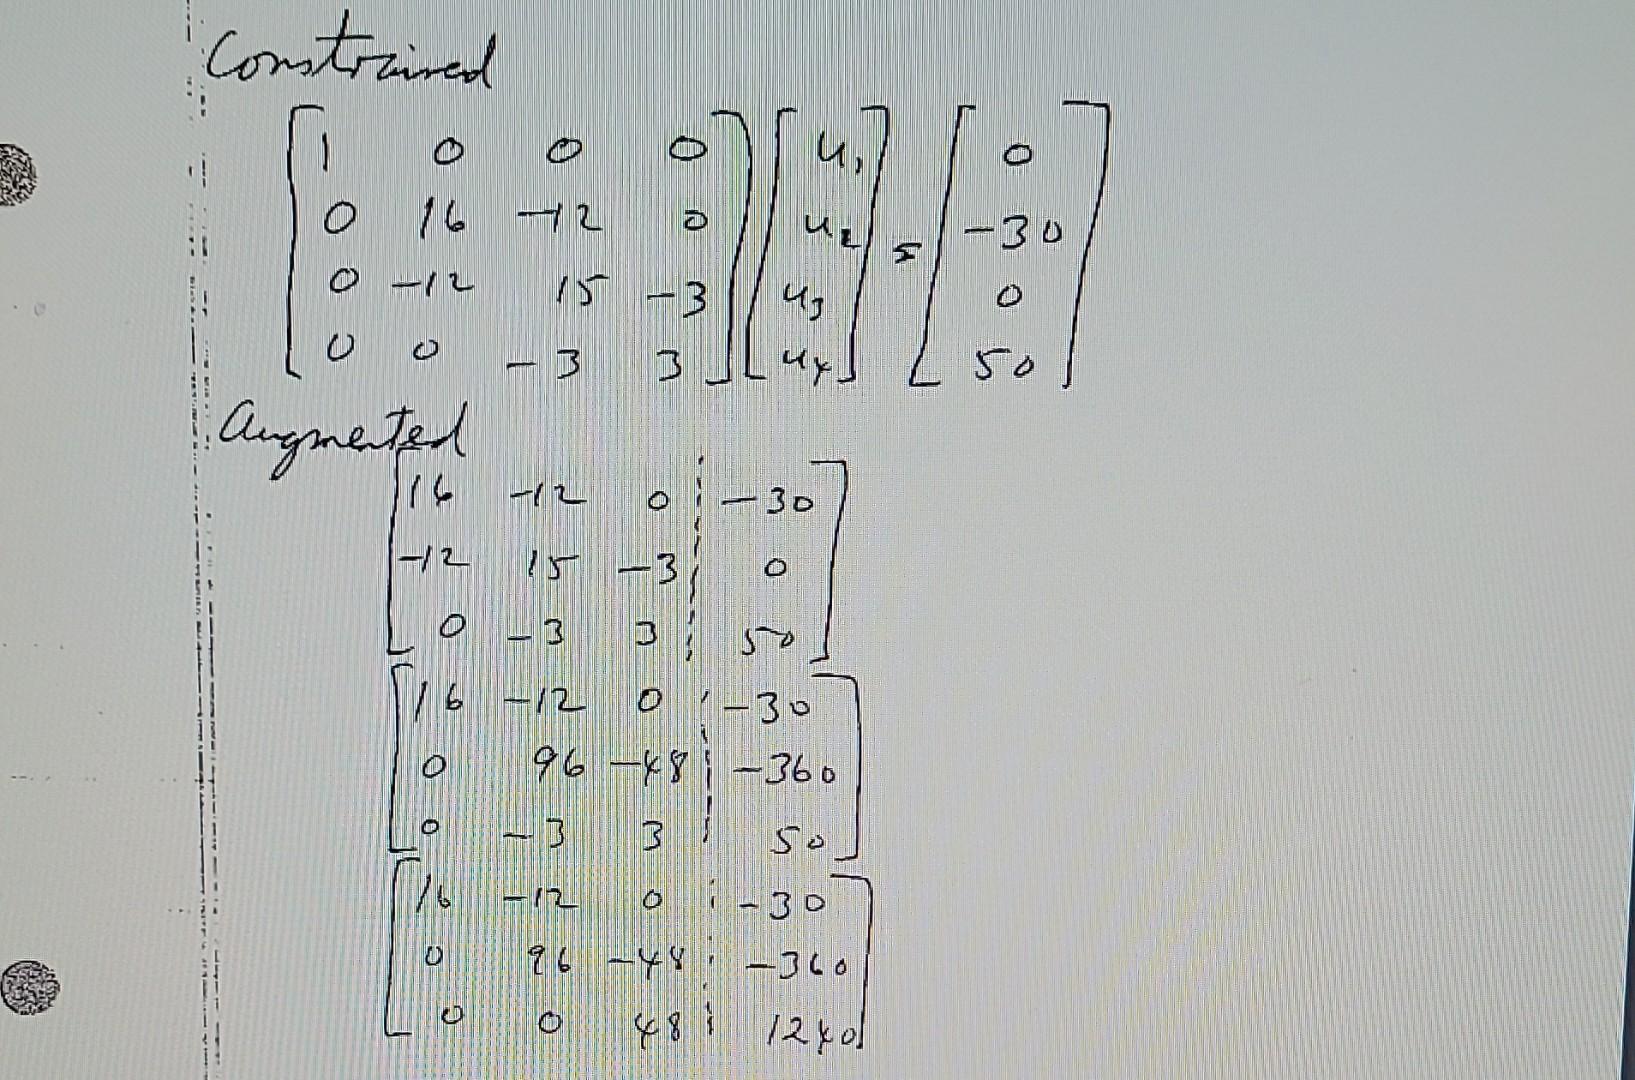 Constrained
1 0 0 0 u1 0
0 16 -12 0 u2 = -30
0 -12 15 -3 u3 0
0 0 -3 3 u4 50
Augmented
16 -12 0 -30
-12 15 -3 0
0 -3 3 50
16 -12 0 -30
0 96 -48 -360
0 -3 3 50
16 -12 0 -30
0 96 -48 -360
0 0 48 1240